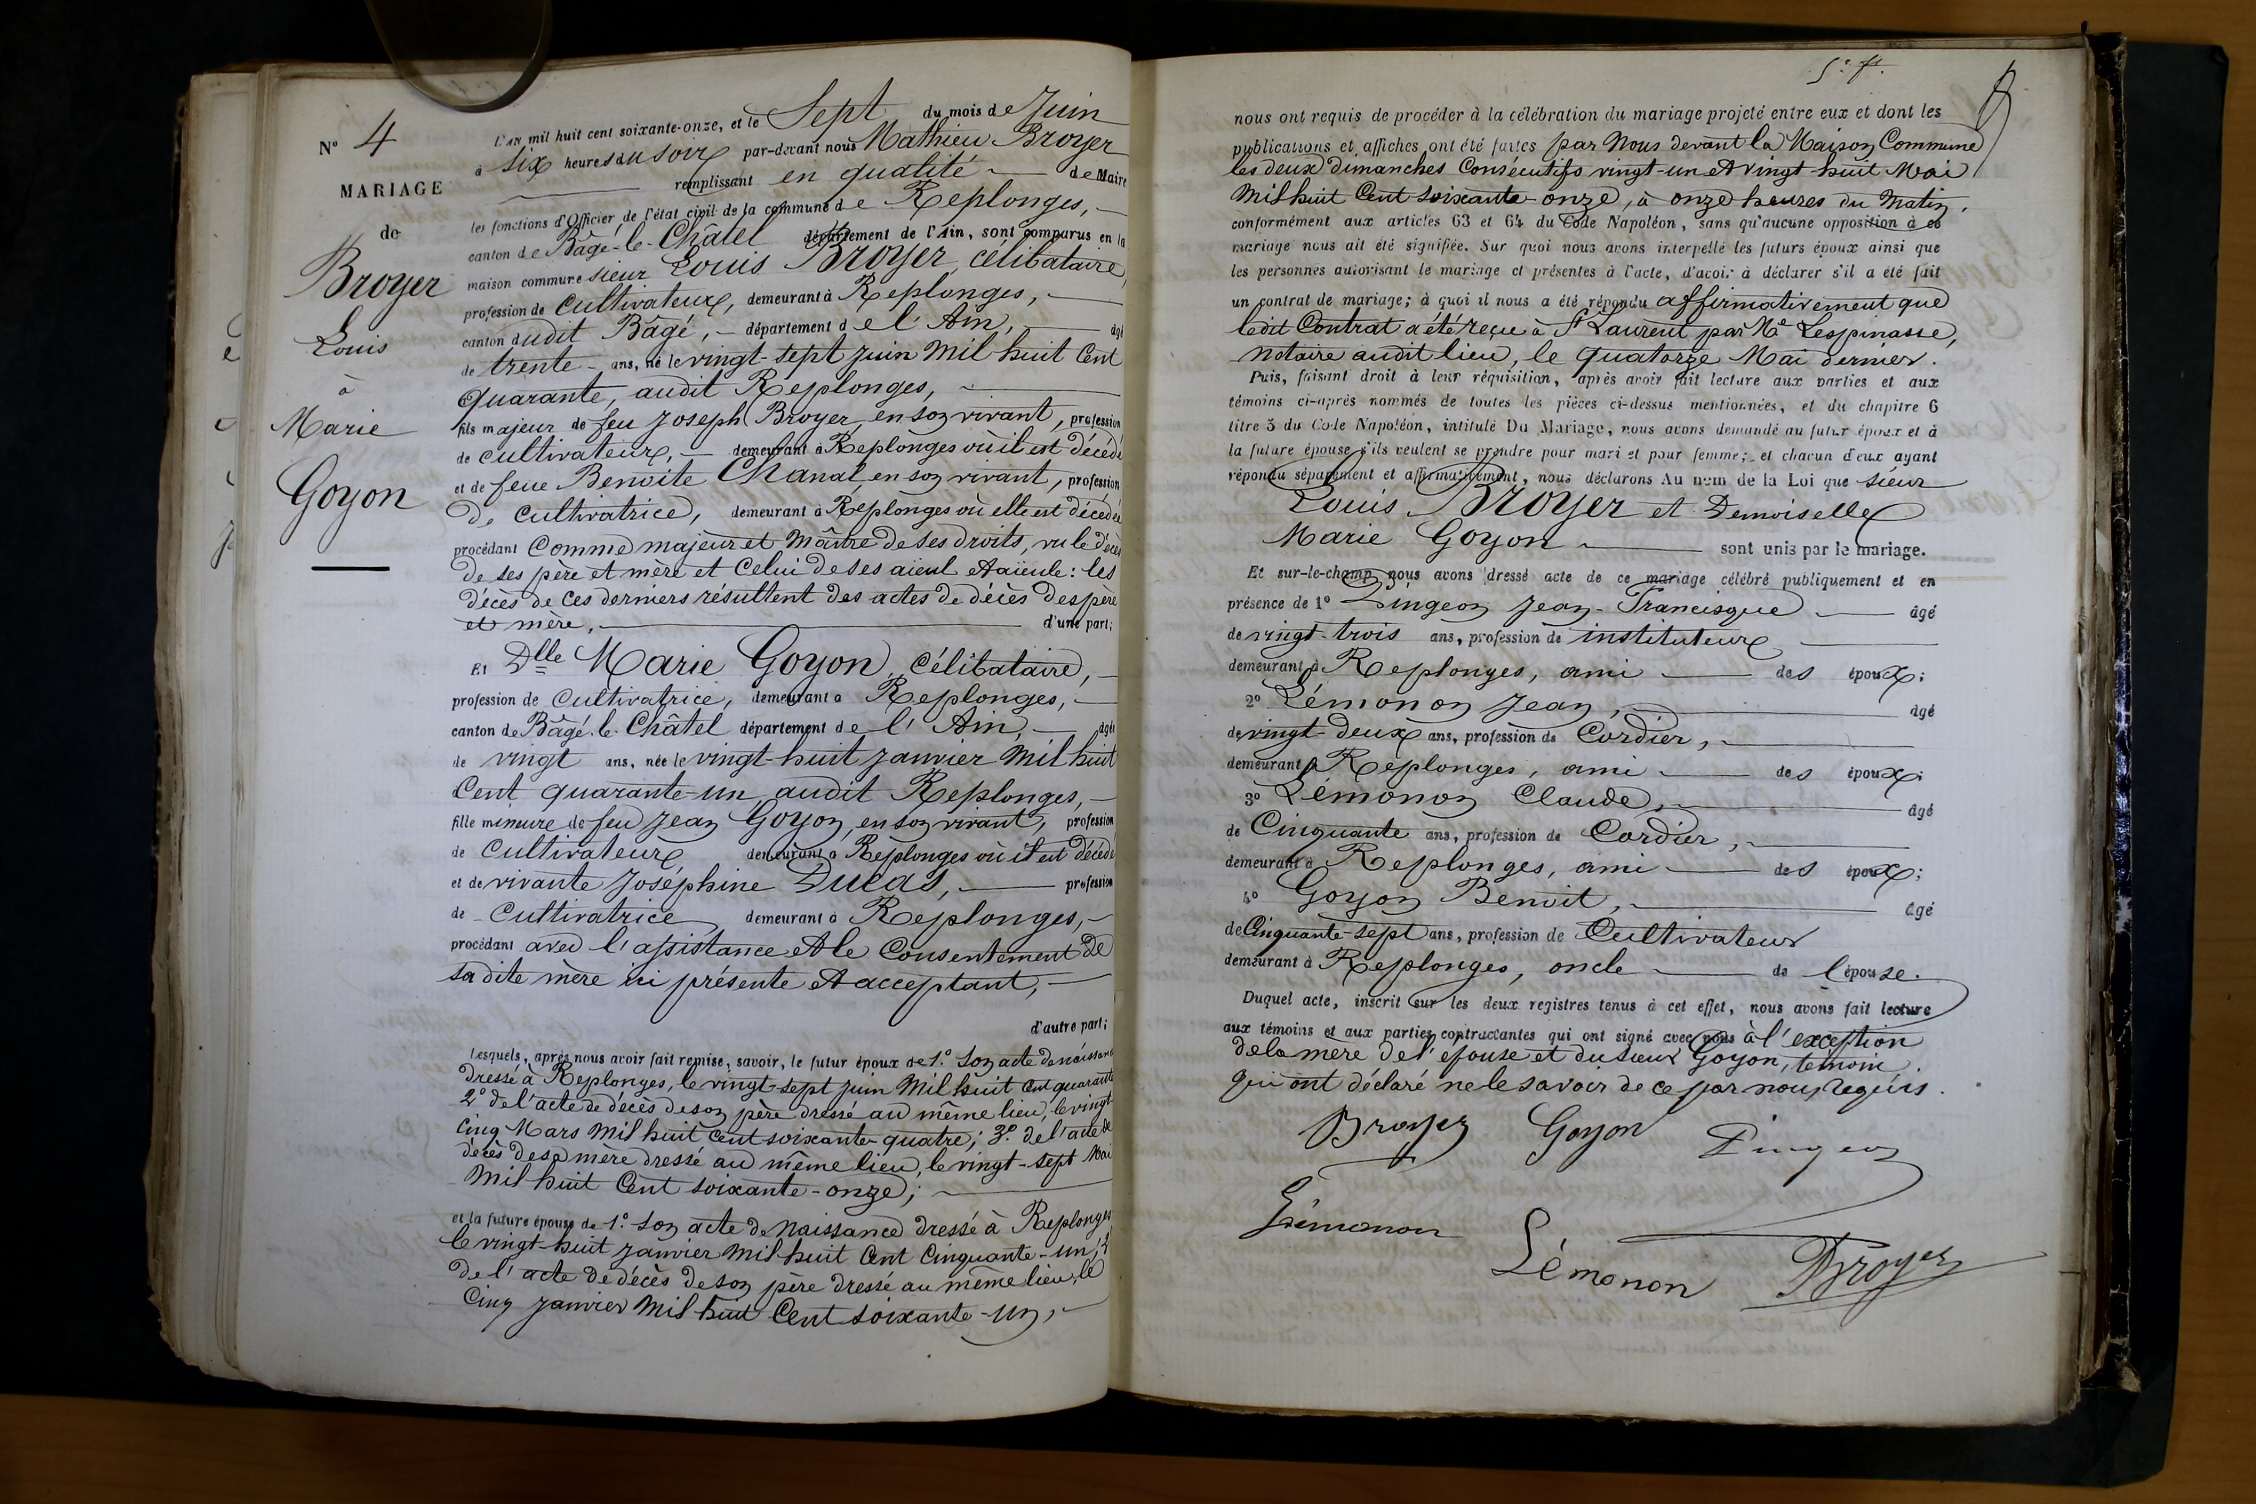 N° 4
MARIAGE
de
Broyer
Louis
à
Marie
Goyon
L'AN mil huit cent soixante-onze, et le Sept du mois de Juin
à six heures du soir par-devant nous Mathieu Broyer
remplissant en qualité de Maire
les fonctions d'Officier de l'état civil de la commune de Replonges,
canton de Bâgé-le-Châtel département de l'Ain, sont comparus en la
maison commune sieur Louis Broyer, célibataire,
profession de cultivateur, demeurant à Replonges,
canton dudit Bâgé, département de l'Ain, âgé
de trente ans, né le vingt-sept juin mil huit Cent
quarante, audit Replonges,
fils majeur de feu Joseph Broyer, en son vivant, profession
de cultivateur, demeurant à Replonges où il est décédé
et de feue Benoite Chanal, en son vivant, profession
de cultivatrice, demeurant à Replonges où elle est décédée
procédant Comme majeur et Maître de ses droits, vu le décès
de ses père et mère et Celui de ses aïeul et aïeule: les
décès de Ces derniers résultent des actes de décès des père
et mère, d'une part;
Et Dlle Marie Goyon, célibataire,
profession de cultivatrice, demeurant à Replonges,
canton de Bâgé-le-Châtel département de l'Ain, âgée
de vingt ans, née le vingt-huit janvier Mil huit
Cent quarante-un audit Replonges,
fille mineure de feu Jean Goyon, en son vivant, profession
de cultivateur demeurant à Replonges où il est décédé
et de vivante Joséphine Ducas, profession
de Cultivatrice demeurant à Replonges,
procédant avec l'assistance et le Consentement de
sa dite mère ici présente et acceptant,
d'autre part;
Lesquels, après nous avoir fait remise, savoir, le futur époux de 1.° Son acte de naissance
dressé à Replonges, le vingt-sept juin Mil huit Cent quarante
2° de l'acte de décès de son père dressé au même lieu, le vingt
Cinq Mars Mil huit Cent soixante-quatre; 3.° de l'acte de
décès de sa mère dressé au même lieu, le vingt-sept Mai
Mil huit Cent soixante-onze;
et la future épouse de 1.° Son acte de Naissance dressé à Replonges
le vingt-huit janvier mil huit Cent Cinquante-un; 2°
de l'acte de décès de son père dressé au même lieu, le
Cinq janvier Mil huit Cent soixante-un,
nous ont requis de procéder à la célébration du mariage projeté entre eux et dont les
publications et affiches ont été faites par Nous devant la Maison Commune
les deux dimanches Consécutifs vingt-un et vingt-huit Mai
Mil huit Cent soixante-onze, à onze heures du Matin,
conformément aux articles 63 et 64 du Code Napoléon, sans qu'aucune opposition à ce
mariage nous ait été signifiée. Sur quoi nous avons interpellé les futurs époux ainsi que
les personnes autorisant le mariage et présentes à l'acte, d'avoir à déclarer s'il a été fait
un contrat de mariage; à quoi il nous a été répondu affirmativement que
ledit Contrat a été reçu à St Laurent par Me Lespinasse,
Notaire audit lieu, le quatorze Mai dernier.
Puis, faisant droit à leur réquisition, après avoir fait lecture aux parties et aux
témoins ci-après nommés de toutes les pièces ci-dessus mentionnées, et du chapitre 6
titre 5 du Code Napoléon, intitulé Du Mariage, nous avons demandé au futur époux et à
la future épouse s'ils veulent se prendre pour mari et pour femme; et chacun d'eux ayant
répondu séparément et affirmativement, nous déclarons Au nom de la Loi que sieur
Louis Broyer et Demoiselle
Marie Goyon sont unis par le mariage.
Et sur-le-champ nous avons dressé acte de ce mariage célébré publiquement et en
présence de 1° Pingeon Jean-Francisque âgé
de vingt-trois ans, profession de instituteur
demeurant à Replonges, ami des époux;
2° Lémonon Jean, âgé
de vingt-deux ans, profession de Cordier,
demeurant à Replonges, ami des époux;
3° Lémonon Claude, âgé
de Cinquante ans, profession de Cordier,
demeurant à Replonges, ami des époux;
4° Goyon Benoit, âgé
de Cinquante-sept ans, profession de Cultivateur
demeurant à Replonges, oncle de l'épouse.
Duquel acte, inscrit sur les deux registres tenus à cet effet, nous avons fait lecture
aux témoins et aux parties contractantes qui ont signé avec nous à l'exception
de la mère de l'épouse et du sieur Goyon, témoin,
qui ont déclaré ne le savoir de ce par nous requis.
Broyer Goyon Pingeon
Lémonon
Lémonon Broyer